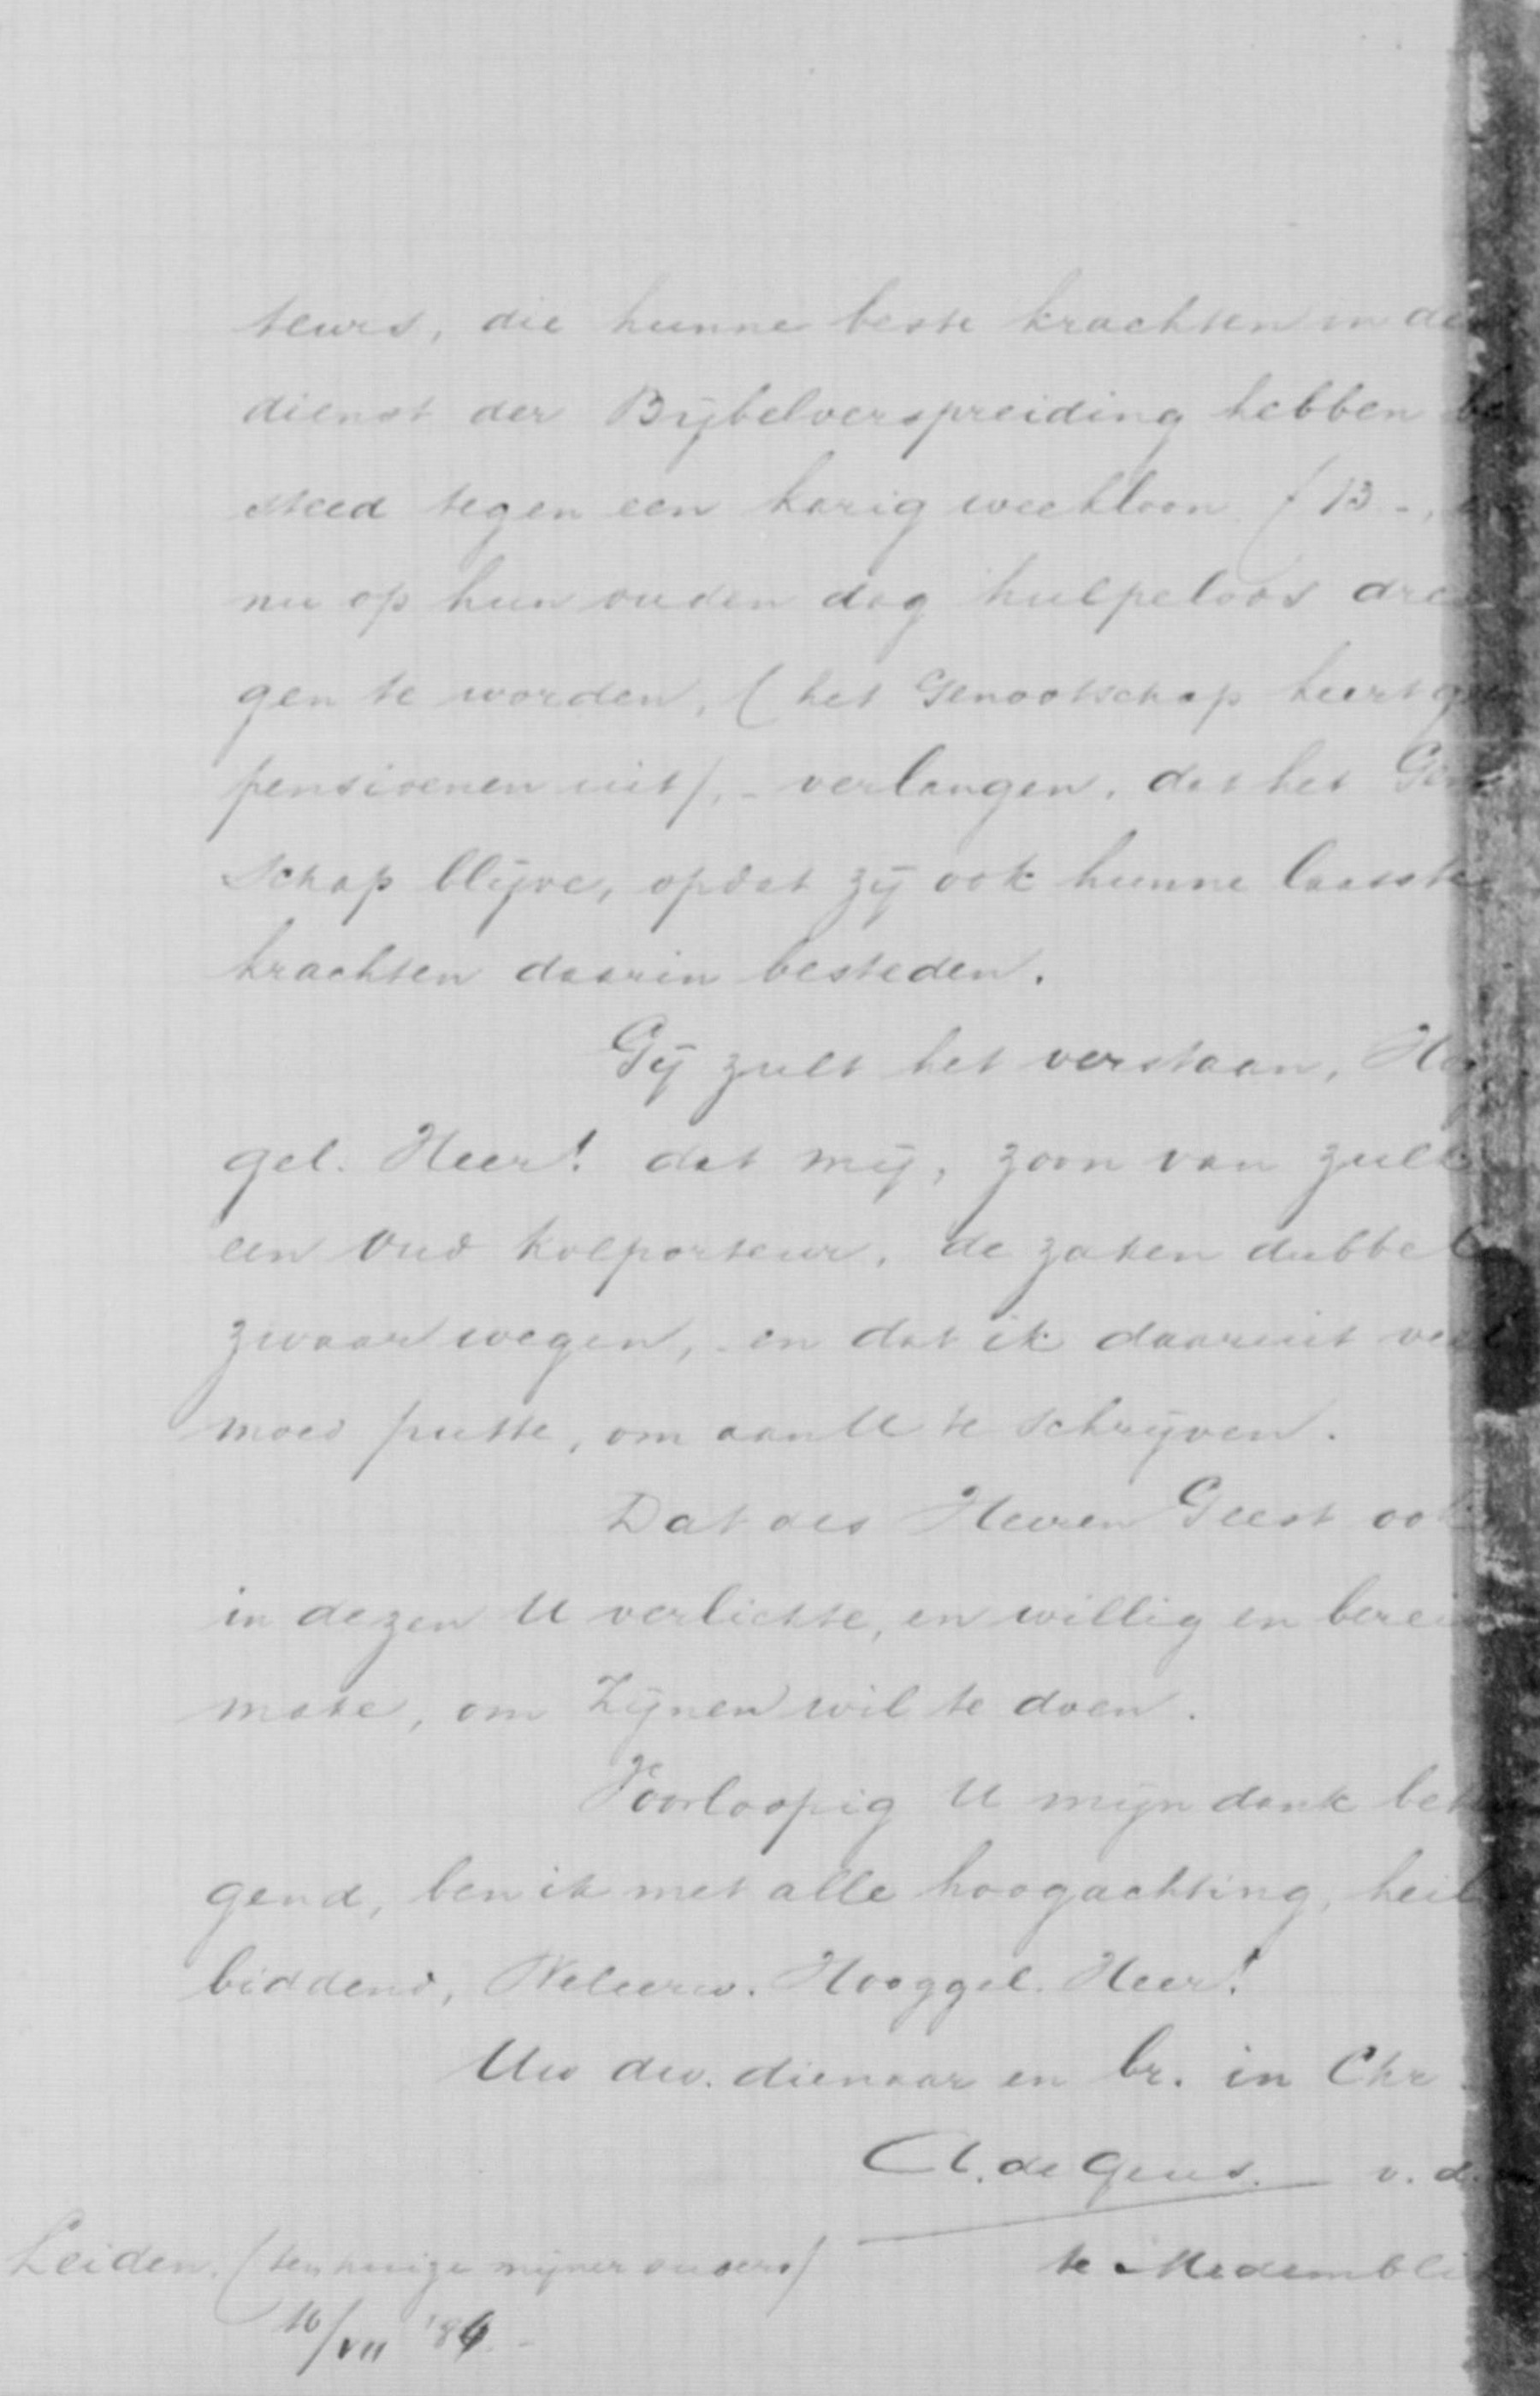 teurs, die hunne beste krachten in de
dienst der Bijbelverspreiding hebben be
steed tegen een karig weekloon f 13.-,
nu op hun ouden dag hulpeloos drei
gen te worden, (het Genootschap keert
pensioenen uit), - verlangen, dat het Gen
schap blijve, opdat zij ook hunne laatste
krachten daarin besteden.
Gij zult het verstaan, Hoog
gel. Heer! dat mij, zoon van zulk
een oud kolporteur, de zaken dubbel
zwaar wegen, en dat ik daaruit veel
moed putte, om aan U te schrijven.
Dat des Heeren Geest ook
in dezen U verlichte, en willig en berei
make, om Zijnen wil te doen.
Voorloopig U mijn dank bet
gend, ben ik met alle hoogachting, heil
biddend, Weleerw. Hooggel. Heer!
Uw dw. dienaar en br. in Chr.
A. de Geus. v. d.
te Medembli
Leiden. (ten huize mijner ouders)
16/VII '84.-